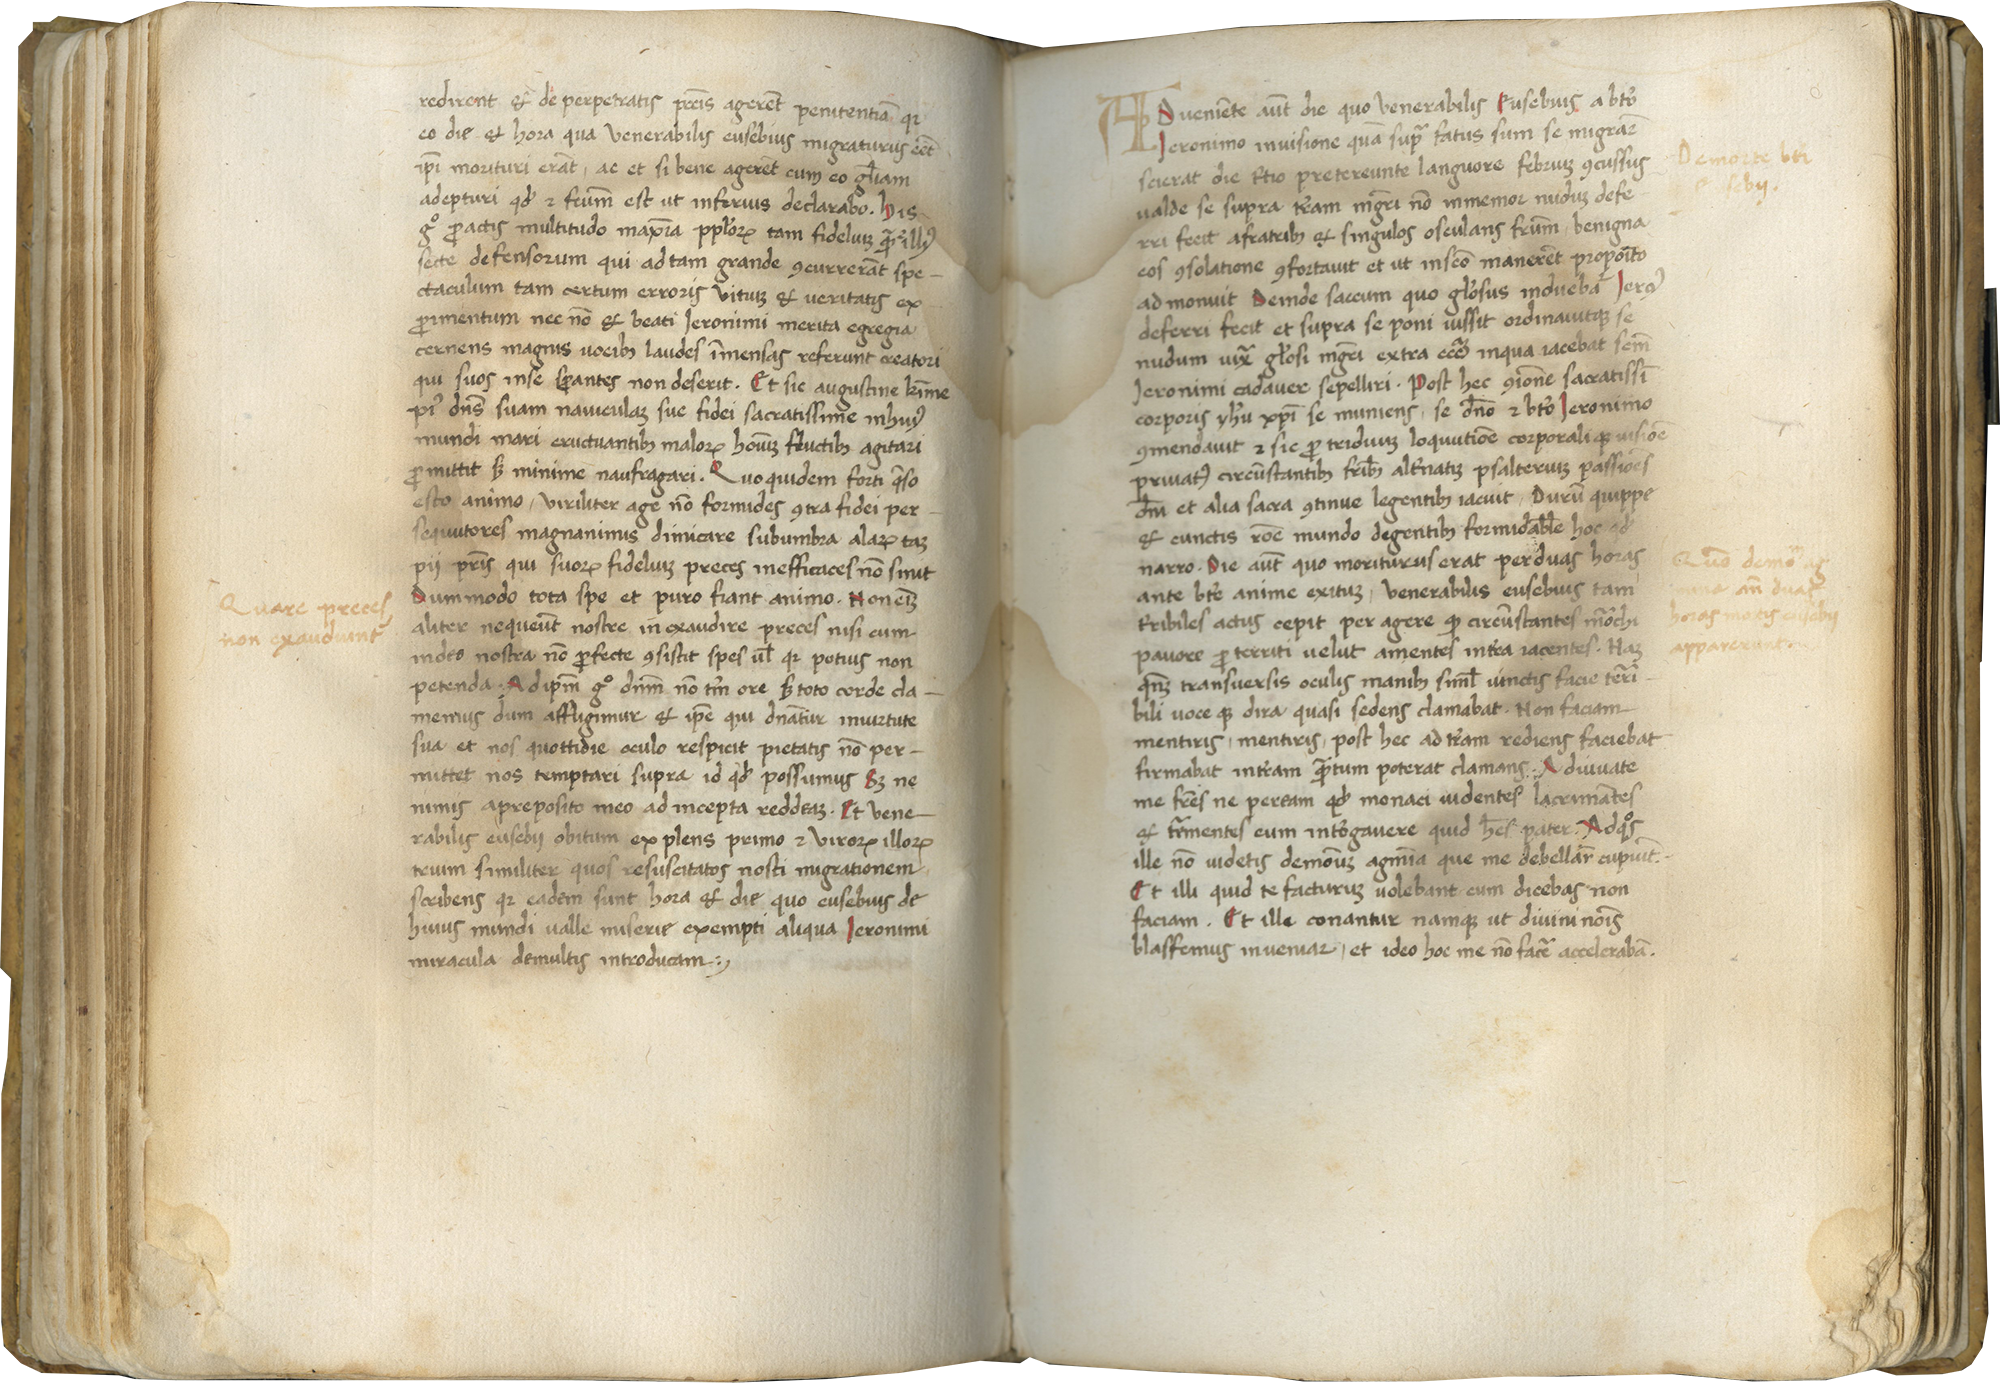 redirent & de perpetratis pctis agerēt penitentiā qr
eo die & hora qua venerabilis eusebius migraturus eēt
ip̄i morituri erāt, ac et si bene agerēt cum eo gl̄iam
adepturi qd̄ ꝛ fcūm est ut inferius declarabo. His
gͦ ꝑactis multitudo maxīa pplōꝝ tam fideliuꝫ qͣꝫ illiꝰ
secte defensorum qui ad tam grande ꝯcurrerāt spe-
ctaculum tam certum erroris vituꝫ & veritatis ex
ꝑimentum nec nō & beati Jeronimi merita egregia
cernens magnis uocibꝫ laudes īmensas referunt creatori
qui suos in se sꝑantes non deserit. Et sic augustine kīme
piꝰ dn̄s suam nauiculaꝫ sue fidei sacratissime in huiꝰ
mundi mari eructuantibꝫ maloꝝ hoīuꝫ fluctibꝫ agitari
ꝑmittit sꝫ minime naufragari. Quo quidem forti q̄so
esto animo, viriliter age nō formides ꝯtra fidei per-
sequutores magnanimus dimicare sub umbra alaꝝ taꝫ
pij pr̄is qui suoꝝ fideliuꝫ preces inefficaces nō sinit
Dummodo tota spe et puro fiant animo. Non eīꝫ
aliter nequeūt nostre in exaudire preces nisi cum
in deo nostra nō ꝑfecte ꝯsistit spes ul̄ qr potius non
petenda. Ad ip̄m gͦ dn̄m nō tm̄ ore sꝫ toto corde cla-
memus dum affligimur & ip̄e qui dn̄atur in uirtute
sua et nos quottidie oculo respicit pietatis nō per-
mittet nos temptari supra id qd̄ possumus Sꝫ ne
nimis a preposito meo ad incepta reddeaꝫ. Et vene-
rabilis eusebij obitum explens primo ꝛ viroꝝ illoꝝ
trium similiter quos resuscitatos nosti migrationem
scribens qr eadem sunt hora & die quo eusebius de
huius mundi ualle miserie exempti aliqua Jeronimi
miracula de multis introducam:,
Quare preces
non exaudiunt
Adueniēte aūt die quo venerabilis Eusebius a btō
Jeronimo in uisione quā supͣ fatus sum se migrare
scierat die tͥtio pretereunte languore febriuꝫ ꝯcussus
ualde se supra tr̄am mgr̄i nō inmemor nuduꝫ defe-
rri fecit a fratribꝫ & singulos osculans frūm, benigna
eos ꝯsolatione ꝯfortauit et ut in sc̄o manerēt proposito
ad monuit Deinde saccum quo gl̄osus induebat̄ Jeroꝰ
deferri fecit et supra se poni iussit ordinauitqꝫ se
nudum iuxͣ gl̄osi mgr̄i extra ecc̄am in qua iacebat sc̄m
Jeronimi cadauer sepelliri. Post hec ꝯionē sacratissī
corporis yhu xp̄i se muniens, se dn̄o ꝛ btō Jeronimo
ꝯmendauit ꝛ sic ꝑ triduuꝫ loquutiōe corporali qꝫ uisiōe
priuatꝰ circūstantibꝫ fr̄ibꝫ alt̄natiꝫ psalteriuꝫ passiōes
dn̄i et alia sacra ꝯtinue legentibꝫ iacuit. Durū quippe
& cunctis rōe mundo degentibꝫ formidabile hoc qd̄
narro. Die aūt quo moriturus erat per duas horas
ante btē anime exituꝫ, venerabilis eusebius tam
tr̄ribiles actus cepit per agere qꝫ circūstantes mōchi
pauore ꝑterriti uelut amentes in tr̄a iacentes. Naꝫ
qn̄ꝫ transuersis oculis manibꝫ siml̄ iunctis facie tērī-
bili uoce qꝫ dira quasi sedens clamabat. Non faciam
mentiris, mentiris, post hec ad tr̄am rediens faciebat
firmabat in tr̄am qͣꝫtum poterat clamans. Adiuuate
me fr̄es ne peream qd̄ monaci uidentes lacrimātes
& tr̄mentes eum int̄rogauere quid hēs pater. Ad qͦs
ille nō uidetis demōuꝫ agmīa que me debellar̄ cupiūt.
Et illi quid te facturuꝫ uolebant cum dicebas non
faciam. Et ille conantur namqꝫ ut diuini noīs
blasfemus inueniar, et ideo hoc me nō facr̄e accelerabā.
De morte bti
Eusebij.
horas mortis eusebij
apparerunt.